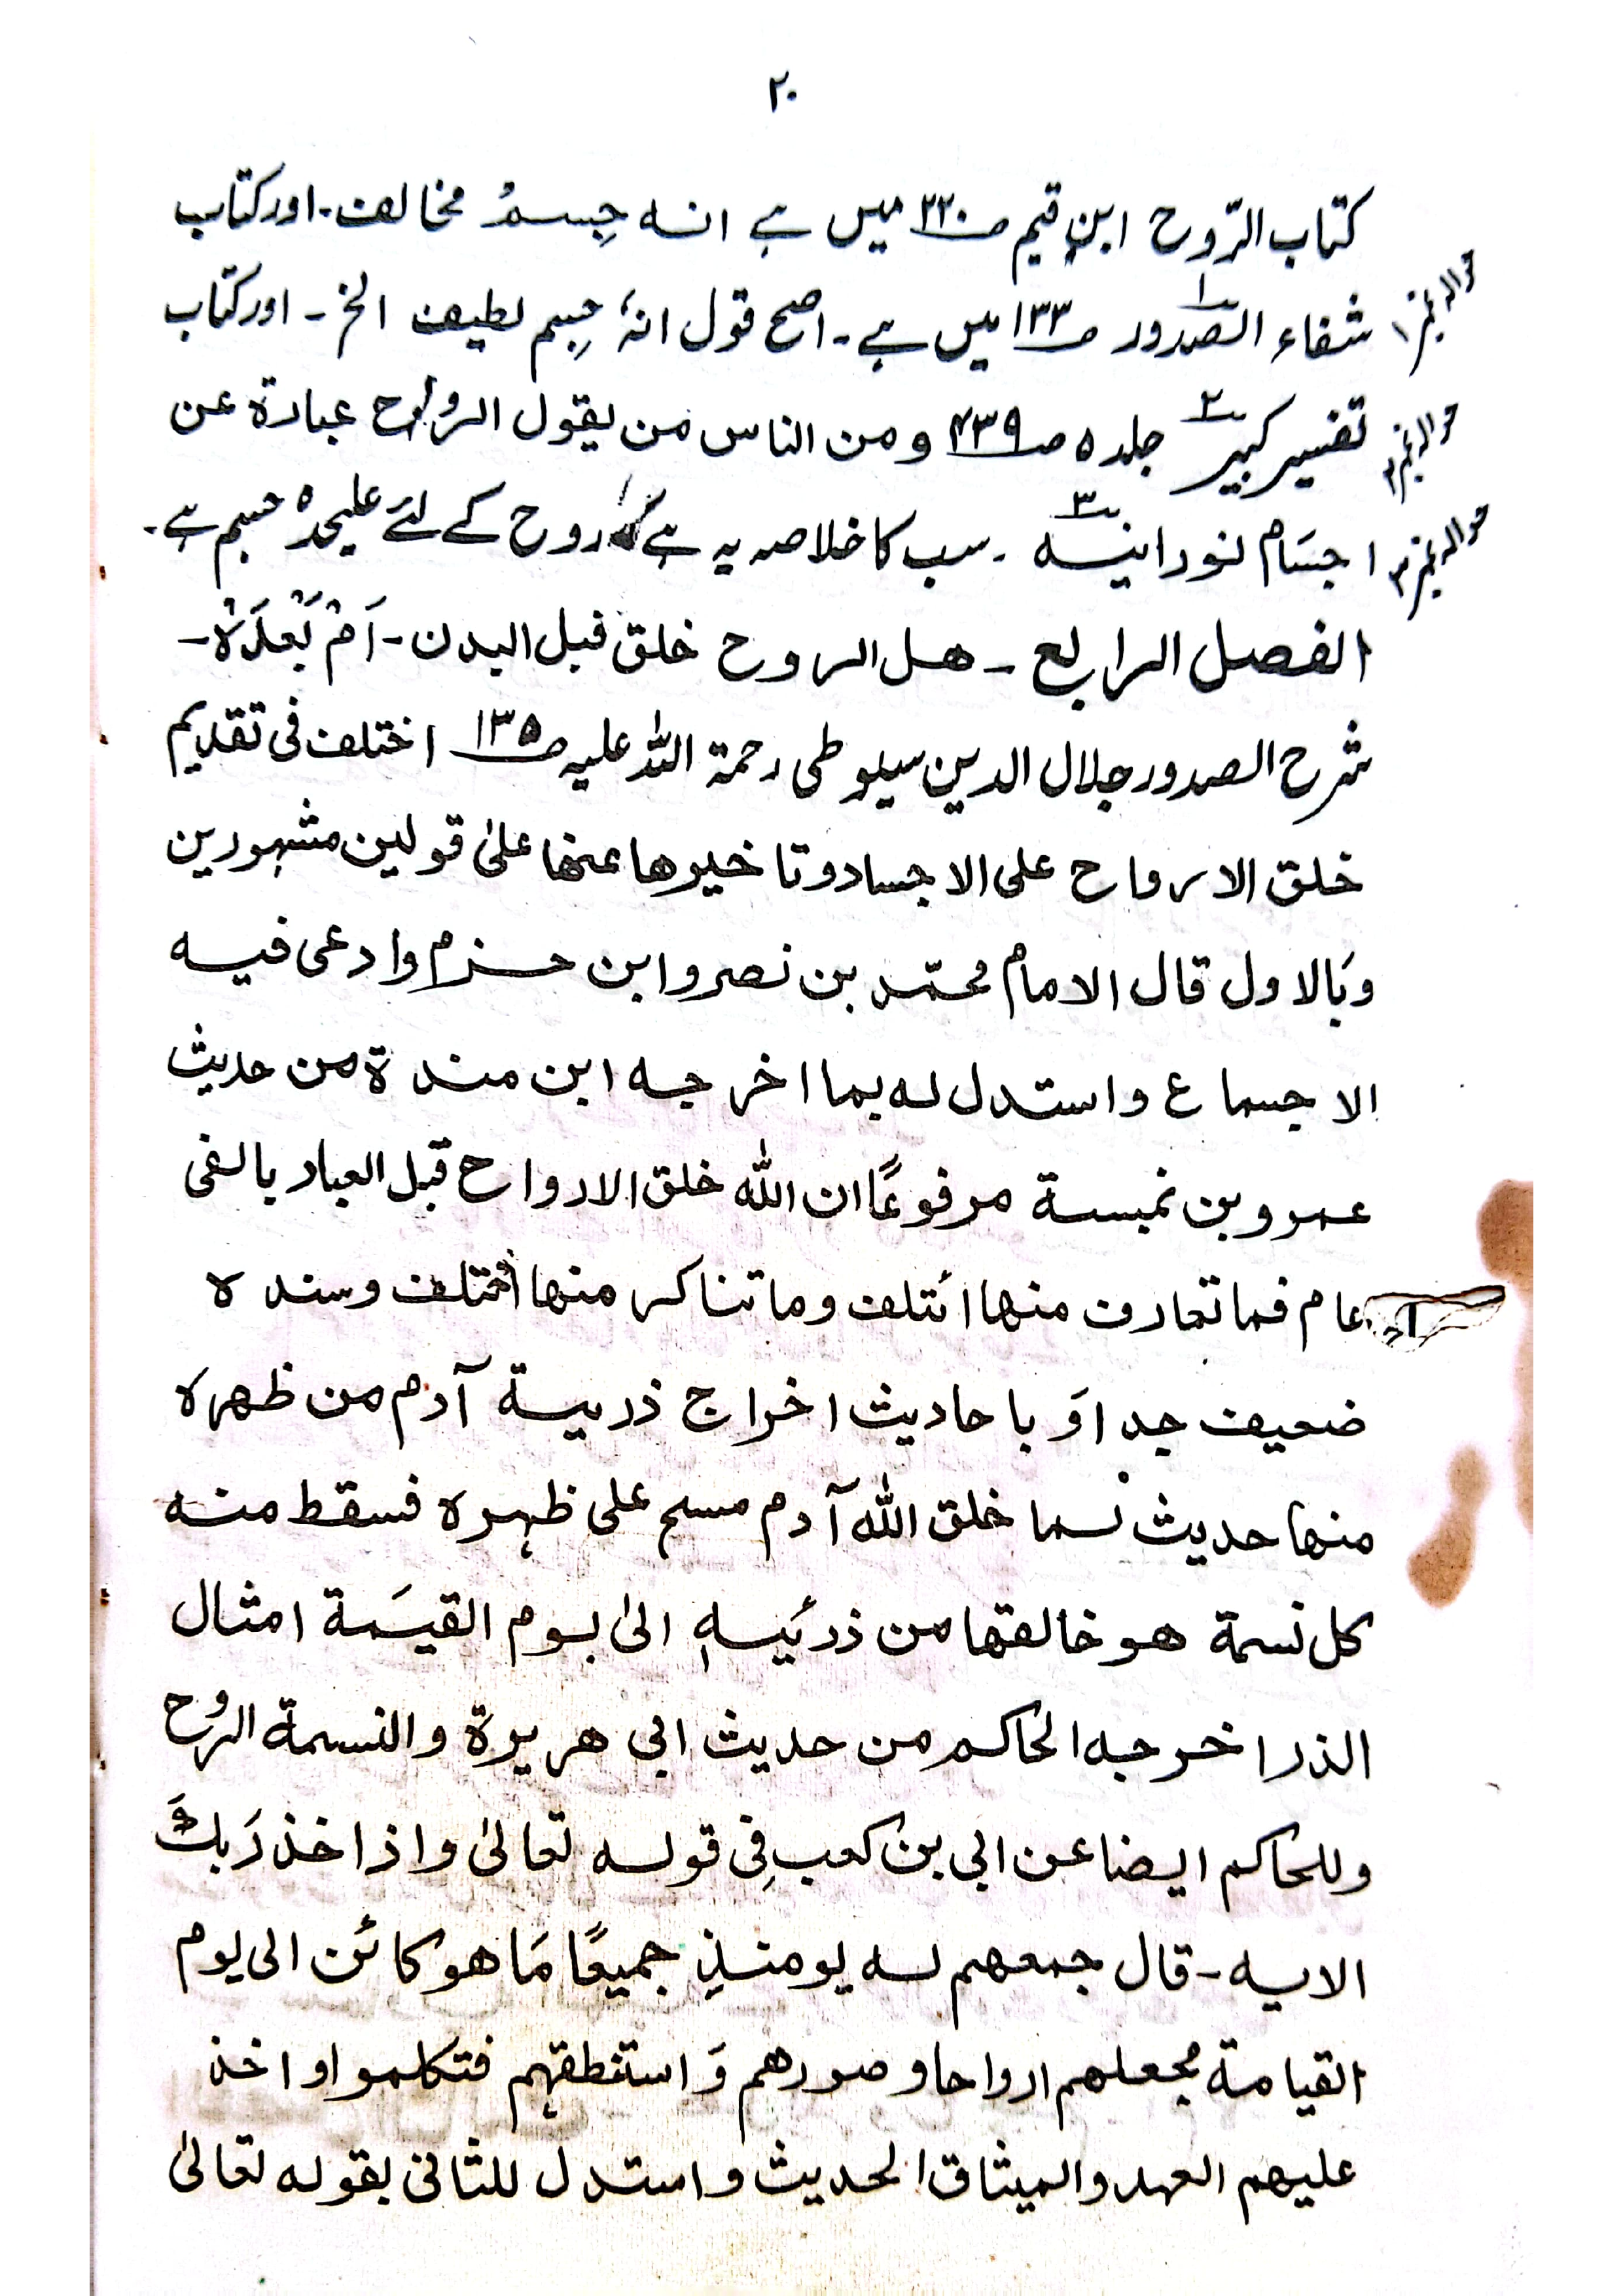 ۲۰
کتاب الرّوح ابن قیم صـ ۲۲۰ میں ہے انہ جِسمُ مخالف۔ اور کتاب
حوالہ نمبر ۱
شفاء الصدور ۱ صـ ۱۳۳ میں ہے۔ اصح قول انہٗ جِسم لطیف الخ۔ اور کتاب
حوالہ نمبر ۲
تفسیر کبیر ۲ جلد ۵ صـ ۴۳۹ ومن الناس من یقول الروح عبادۃ عن
حوالہ نمبر ۳
اجسَام نورانیہ ۳۔ سب کا خلاصہ یہ ہے کہ روح کے لئے علیحدہ جسم ہے۔
الفصل الرابع۔ ھل الروح خلق قبل البدن۔ اَمْ بَعْدَہٗ۔
شرح الصدور جلال الدین سیوطی رحمۃ اللہ علیہ صـ ۱۳۵ اختلف فی تقدیم
خلق الارواح علی الاجساد وتاخیرھا عنھا علیٰ قولین مشہورین
وَبالاول قال الامام محمّد بن نصر وابن حزم وادعی فیہ
الاجماع واستدل لہ بما اخرجہ ابن مندۃ من حدیث
عمرو بن نمبسۃ مرفوعًا ان اللہ خلق الارواح قبل العباد بالفی
عام فما تعارف منھا ائتلف وما تناکر منھا اختلف وسندہ
ضعیف جدا وَ باحادیث اخراج ذریۃ آدم من ظھرہ
منھا حدیث لما خلق اللہ آدم مسح علی ظہرہ فسقط منہ
کل نسمۃ ھو خالقھا من ذرئیہٖ الیٰ یوم القیٰمۃ امثال
الذر اخرجہ الحاکم من حدیث ابی ھریرۃ والنسمۃ الروح
وللحاکم ایضا عن ابی بن کعب فِی قولہ تعالیٰ واذ اخذ رَبكَ
الایہ۔ قال جمعھم لہ یومئذٍ جمیعًا مَا ھو کائن الی یوم
القیامۃ فجعلھم ارواحا وصورھم وَاستنطقہم فتکلموا واخذ
علیہم العہد والمیثاق الحدیث واستدل للثانی بقولہ تعالیٰ